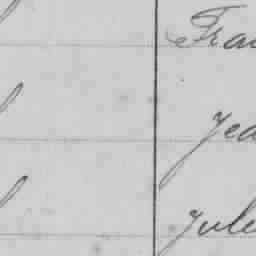 Fra
Jea
Jule